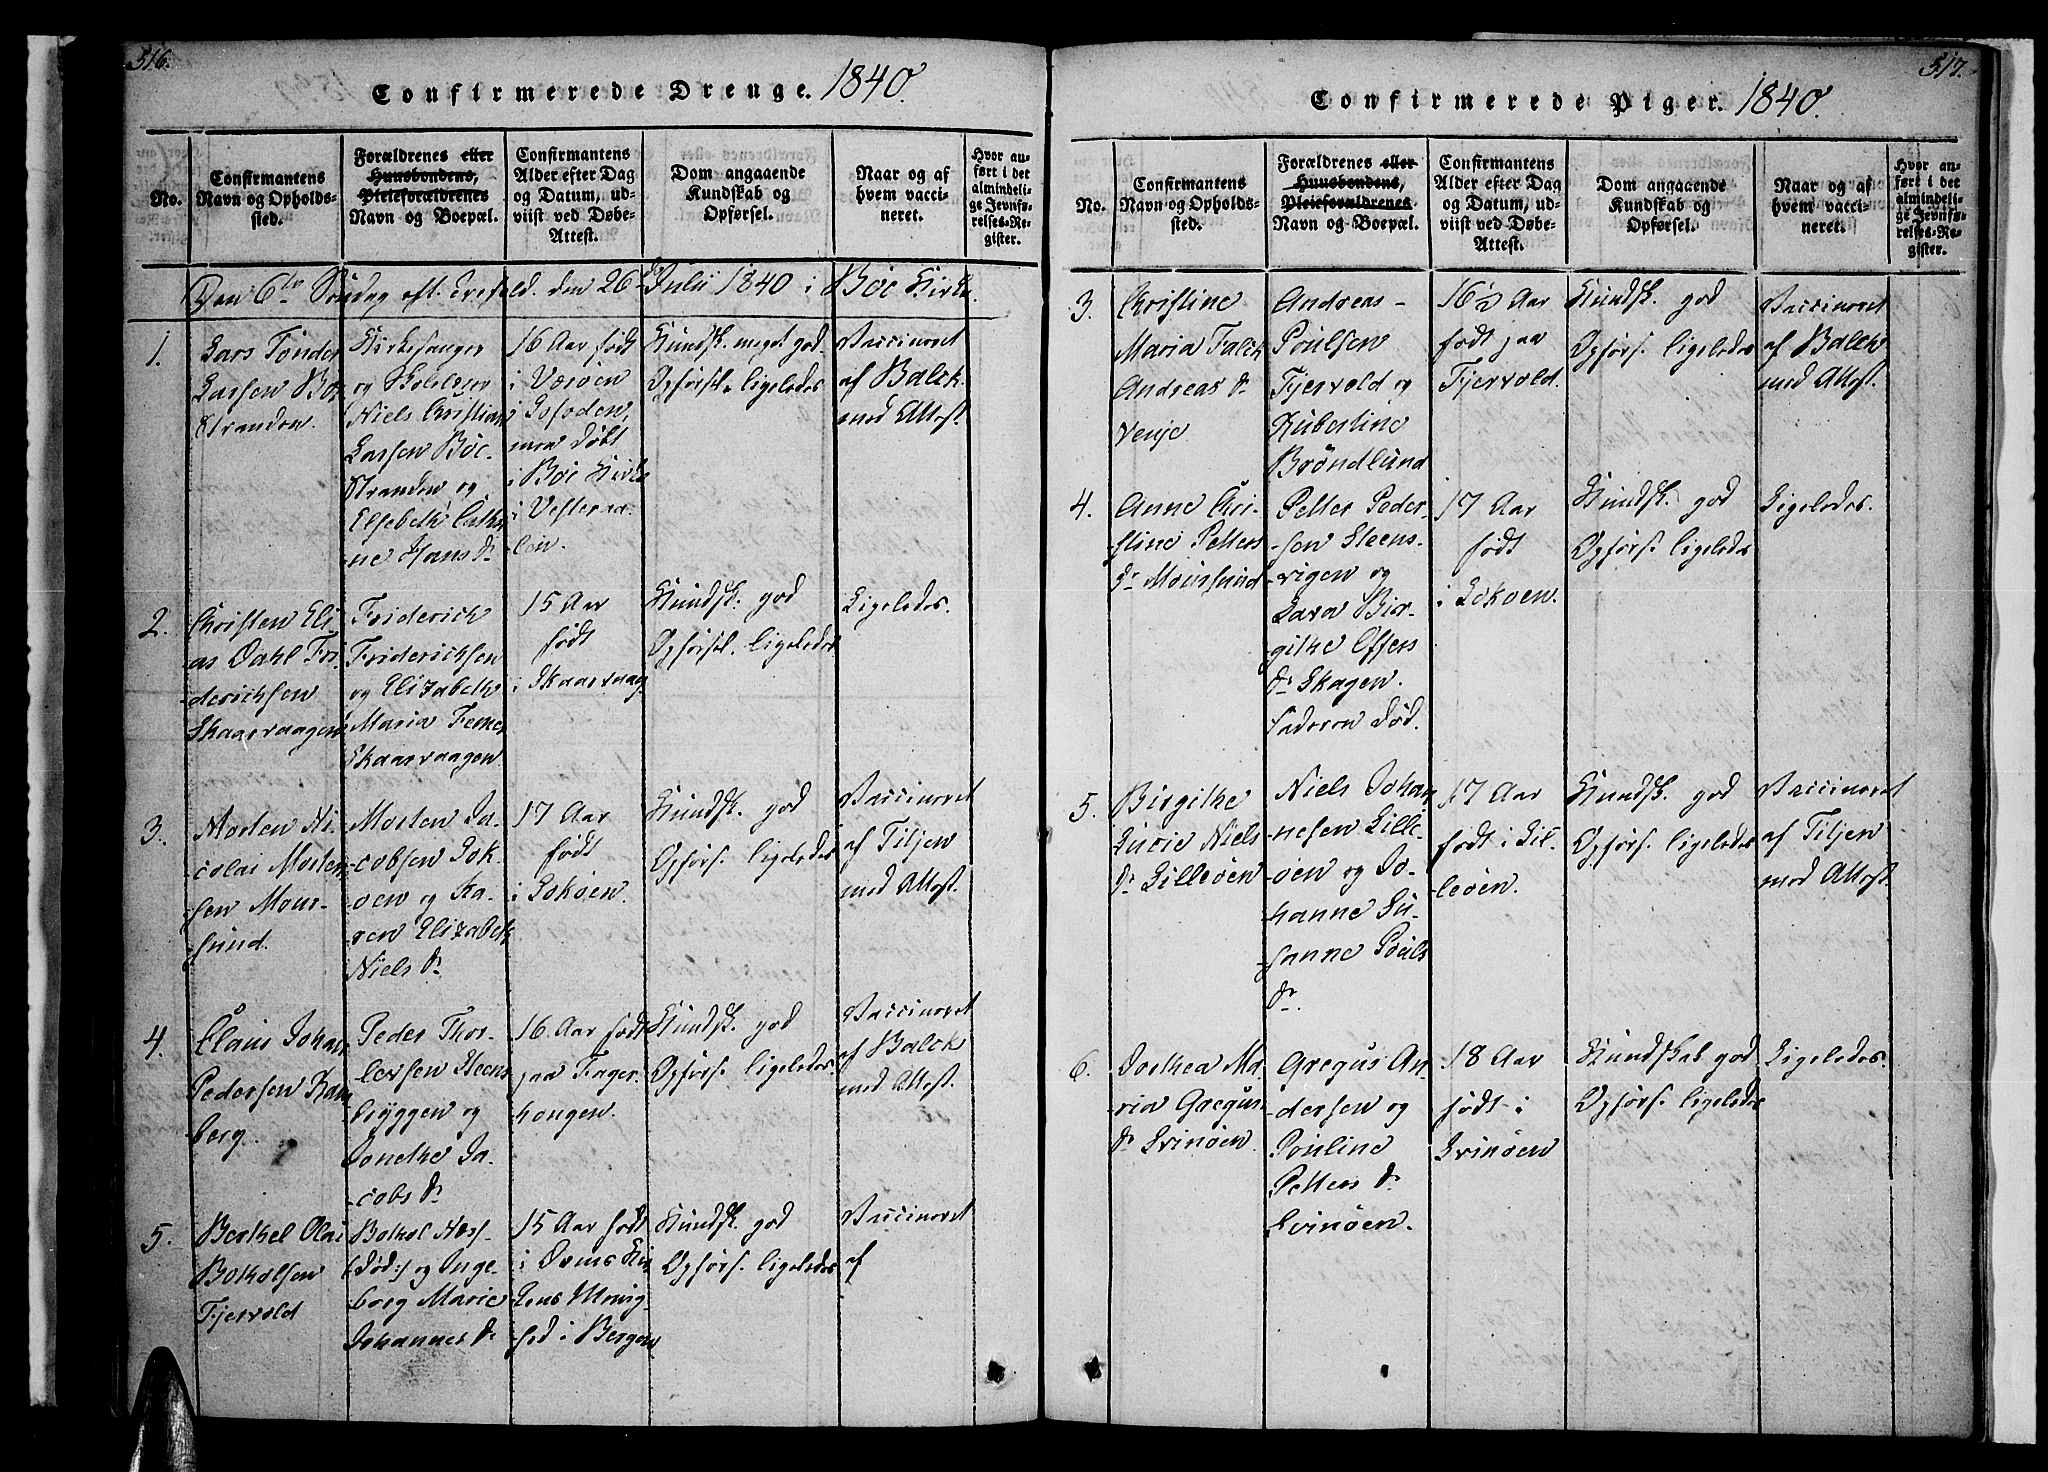 516.
Confirmerede Drenge. 1840.
No.
Confirmantens
Navn og Opholds-
sted.
Forældrenes eller
Huusbondens,
Pleieforældrenes
Navn og Boepæl.
Confirmantens
Alder efter Dag
og Datum, ud-
viist ved Døbe-
Attest.
Dom angaaende
Kundskab og
Opførsel.
Naar og af
hvem vacci-
neret.
Hvor an-
ført i det
almindeli-
ge Jevnfø-
relses-Re-
gister.
Den 6te Søndag eft. Trefold. den 26de Julii 1840 i Bøe Kirke.
1.
Lars Tønder
Larsen Bøe
Stranden.
Kirkesanger
og Skolelærer
Niels Christian
Larsen Bøe-
Stranden og
Elsebeth Cathri
ne Hans Dr
16 Aar født
i Værøen
i Lofoden,
men døbt
i Bøe Kirke
i Vesteraa-
len.
Kundsk. meget god.
Opførsel ligeledes
Vaccineret
af Balck
med Attest.
2.
Christen Eli
as Dahl Fri-
derichsen
Skaarvaagen
Friderich
Friderichsen
og Elizabeth
Maria
Skaarvaagen
15 Aar
født
i Skaarvaag
Kundsk: god
Opførsel. ligeledes
Ligeledes.
3.
Morten Ni
-colai Morten
-sen Mour-
-sund.
Morten Ja-
-cobsen Lok-
-øen og Ka-
-ren Elizabeth
Niels Dr
17 Aar
født
i Lokøen.
Kundsk. god
Opførs. ligeledes
Vaccineret
af Tiljen
med Attest.
4.
Claus Johan
Pedersen Ram
-berg.
Peder Thor-
-lersen Steens
bryggen og
Jonethe Ja-
-cobs Dr
16 Aar født
paa Fager-
hongen.
Kundsk. god
Opførs. ligeledes
Vaccineret
af Balck
med Attest.
5.
Berthel Olai
Botholsen
Fjervold
Bothol
(død:) og Inge-
borg Marie
Johannes Dr
15 Aar født
i
-kens Menig-
-hed i Bergen
Kundsk. god
Opførs. ligeledes
Vaccineret
af
517.
Confirmerede Piger. 1840.
No.
Confirmantens
Navn og Opholds-
sted.
Forældrenes eller
Huusbondens,
Pleieforældrenes
Navn og Boepæl.
Confirmantens
Alder efter Dag
og Datum, ud-
viist ved Døbe-
Attest.
Dom angaaende
Kundskab og
Opførsel.
Naar og af
hvem vacci-
neret.
Hvor an-
ført i det
almindelig-
ge Jevnfø-
relses-Re-
gister.
3.
Christine
Maria Falck
Andreas Dr
Venje
Andreas -
Poulsen
Fjervold og
Hubertine
Brøndlund
16½ Aar
født paa
Fjervold.
Kundsk. god
Opførs. ligeledes
Vaccineret
af Balck
med Attest.
4.
Anne Chri-
-stine Petters
Dr Moursund
Petter Peder-
-sen Steens-
-vigen og
Lava Bir-
-githe Offers
Dr Skagen.
Faderen død.
17 Aar
født
i Lokøen.
Kundsk. god
Opførs. ligeledes
Ligeledes.
5.
Birgithe
Lucie Niels
Dr Lilleøen
Niels Johan
-nesen Lille-
-øen og Jo-
-hanne Su-
-sanne Pouls
Dr.
17 Aar
født i Lil-
-leøen.
Kundsk. god
Opførs. ligeledes
Vaccineret
af Tiljen
med Attest.
6.
Dorthea Ma-
-ria Gregus-
Dr Svinøen
Gregus An-
-dersen og
Pouline
Petters Dr
Svinøen.
18 Aar
født i
Svinøen
Kundskab god
Opførs. ligeledes
Ligeledes.